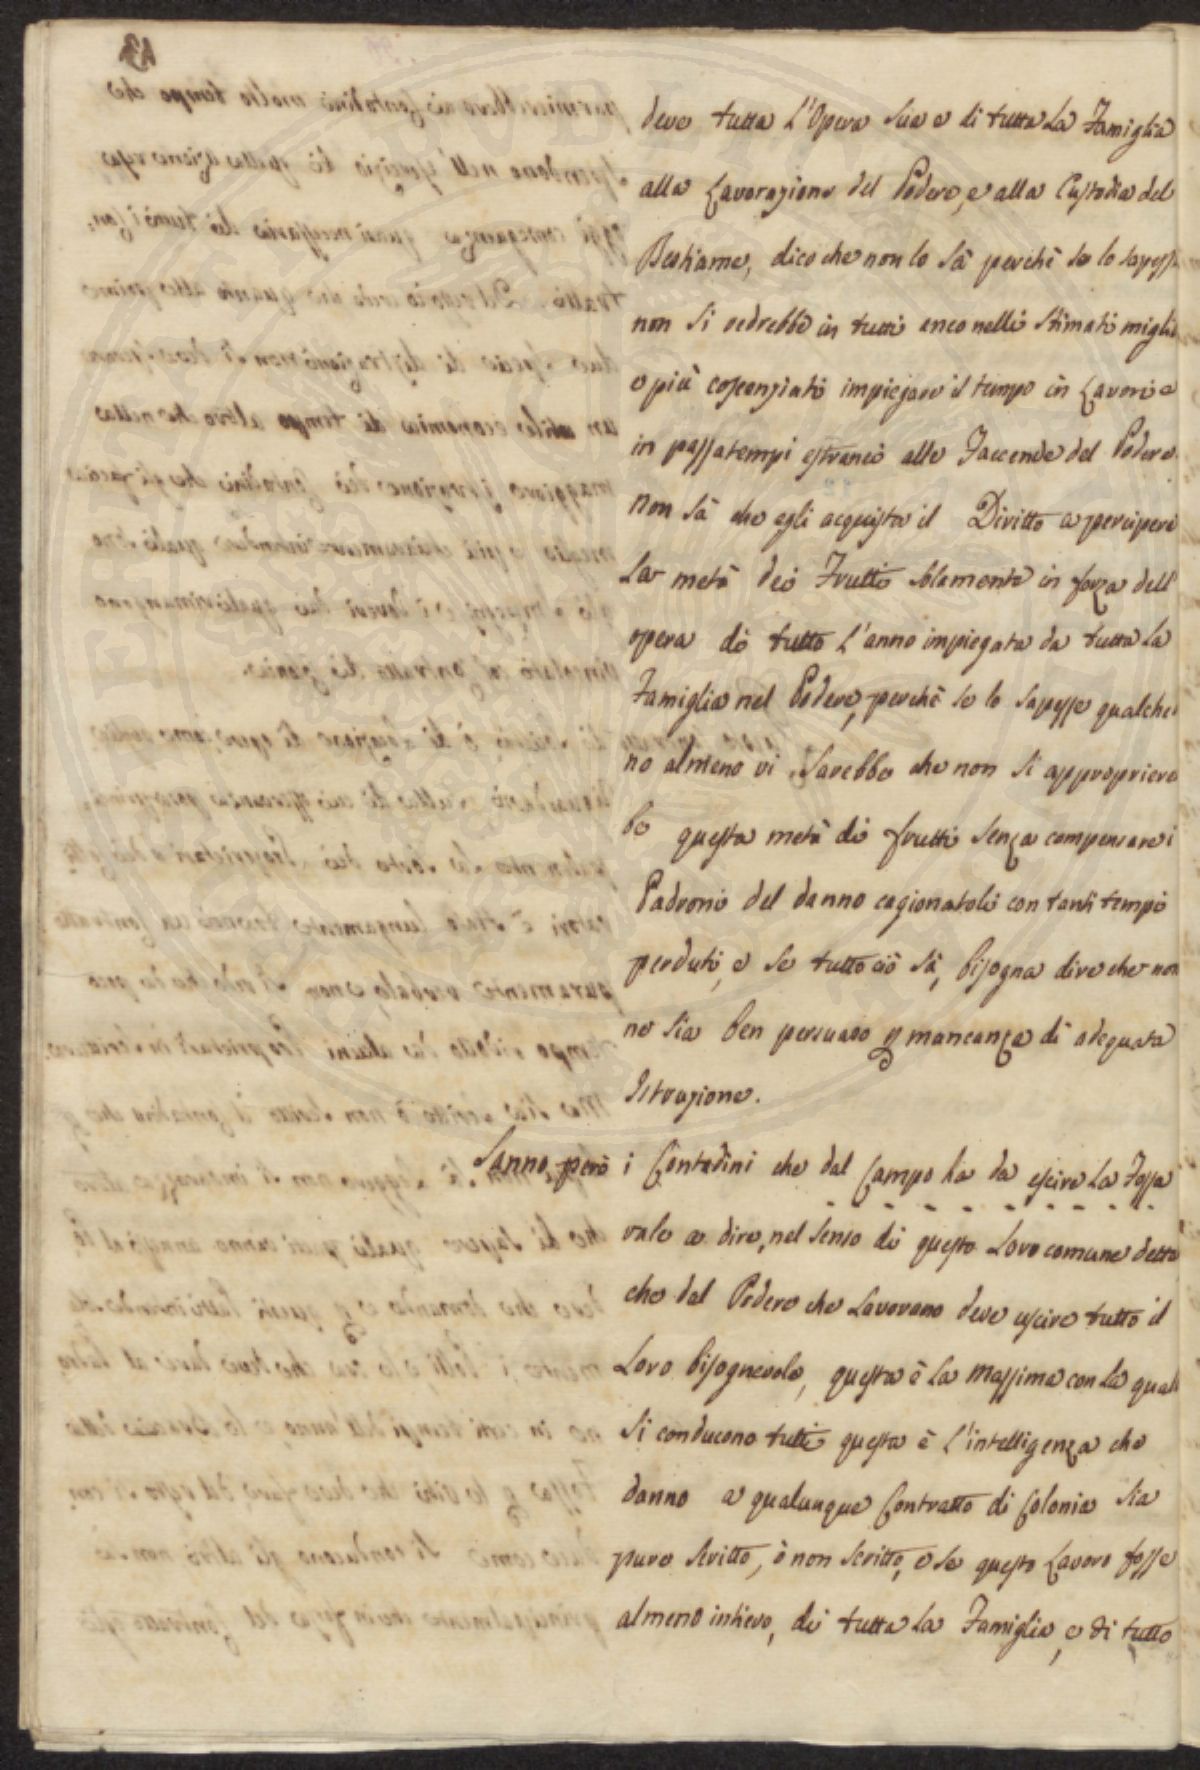 deve tutta l'Opera sua e di tutta la Famiglia
alla Lavorazione del Podere, e alla Custodia del
Bestiame, dico che non lo sà perchè se lo sapesse
non si vedrebbe in tutti anco nelli stimati miglio
o più coscenziati impiegare il tempo in Lavori e
in passatempi estranei alle Faccende del Podere
non sà che egli acquista il Diritto a percipere
la metà dei Frutti solamente in forza dell'
opera di tutto l'anno impiegata da tutta la
Famiglia nel Podere, perchè se lo sapesse qualche
no almeno vi sarebbe che non si appropriereb
be questa metà di frutti senza compensare i
Padroni del danno cagionatoli con tanti tempi
perduti, e se tutto ciò sà, bisogna dire che non
ne sia ben persuaso p mancanza di adequata
Istruzione.
Sanno però i Contadini che dal Campo ha da escire la Fossa
vale a dire, nel senso di questo loro comune detto
che dal Podere che lavorano deve escire tutto il
Loro bisognevole, questa è la massima con la quale
si conducono tutti questa è l'intelligenza che
danno a qualunque Contratto di Colonia sia
pure scritto, ò non scritto, e se questo Lavoro fosse
almeno intiero, di tutta la Famiglia, e di tutto